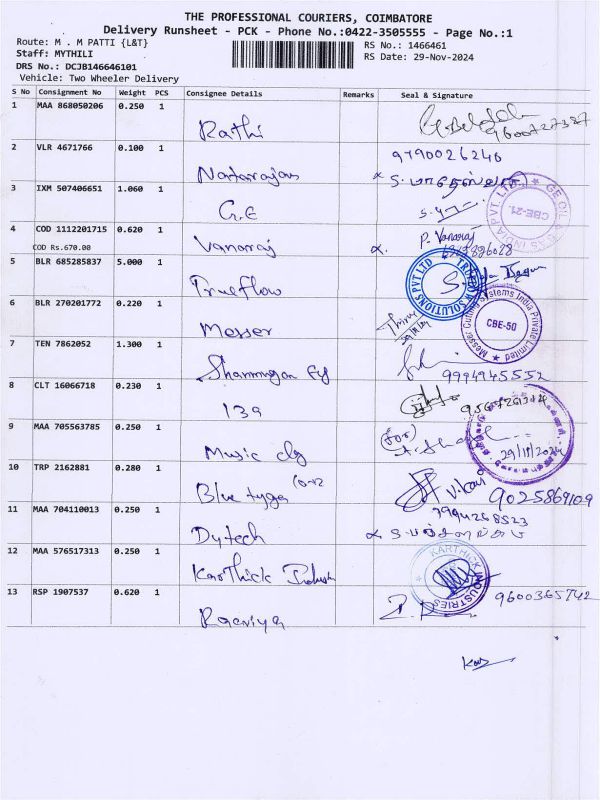 THE PROFESSIONAL COURIERS, COIMBATORE
Delivery Runsheet - PCK - Phone No.:0422-3505555 - Page No.:1
Route: M . M PATTI {L&T}
RS No.: 1466461
Staff: MYTHILI
RS Date: 29-Nov-2024
DRS No.: DCJB146646101
Vehicle: Two Wheeler Delivery
S No Consignment No Weight PCS Consignee Details Remarks Seal & Signature
1 MAA 868050206 0.250 1 Rathi 9600727387
2 VLR 4671766 0.100 1 Natarajan 9790026240
3 IXM 507406651 1.060 1 G.E
CBE-21
4 COD 1112201715 0.620 1 Vanaraj P. Vanaraj
COD Rs.670.00
5 BLR 685285737 5.000 1 Trueflow
6 BLR 270201772 0.220 1 Messer
Messer Cutting Systems India Private Limited
CBE-50
7 TEN 7862052 1.300 1 9994945552
8 CLT 16066718 0.230 1 139
9 MAA 705563785 0.250 1 Music clg 29/11/2024
10 TRP 2162881 0.280 1 Blue tyga 9025869109
11 MAA 704110013 0.250 1 Dytech 7994268523
12 MAA 576517313 0.250 1 Karthick
KARTHICK INDUSTRIES
13 RSP 1907537 0.620 1 9600365742